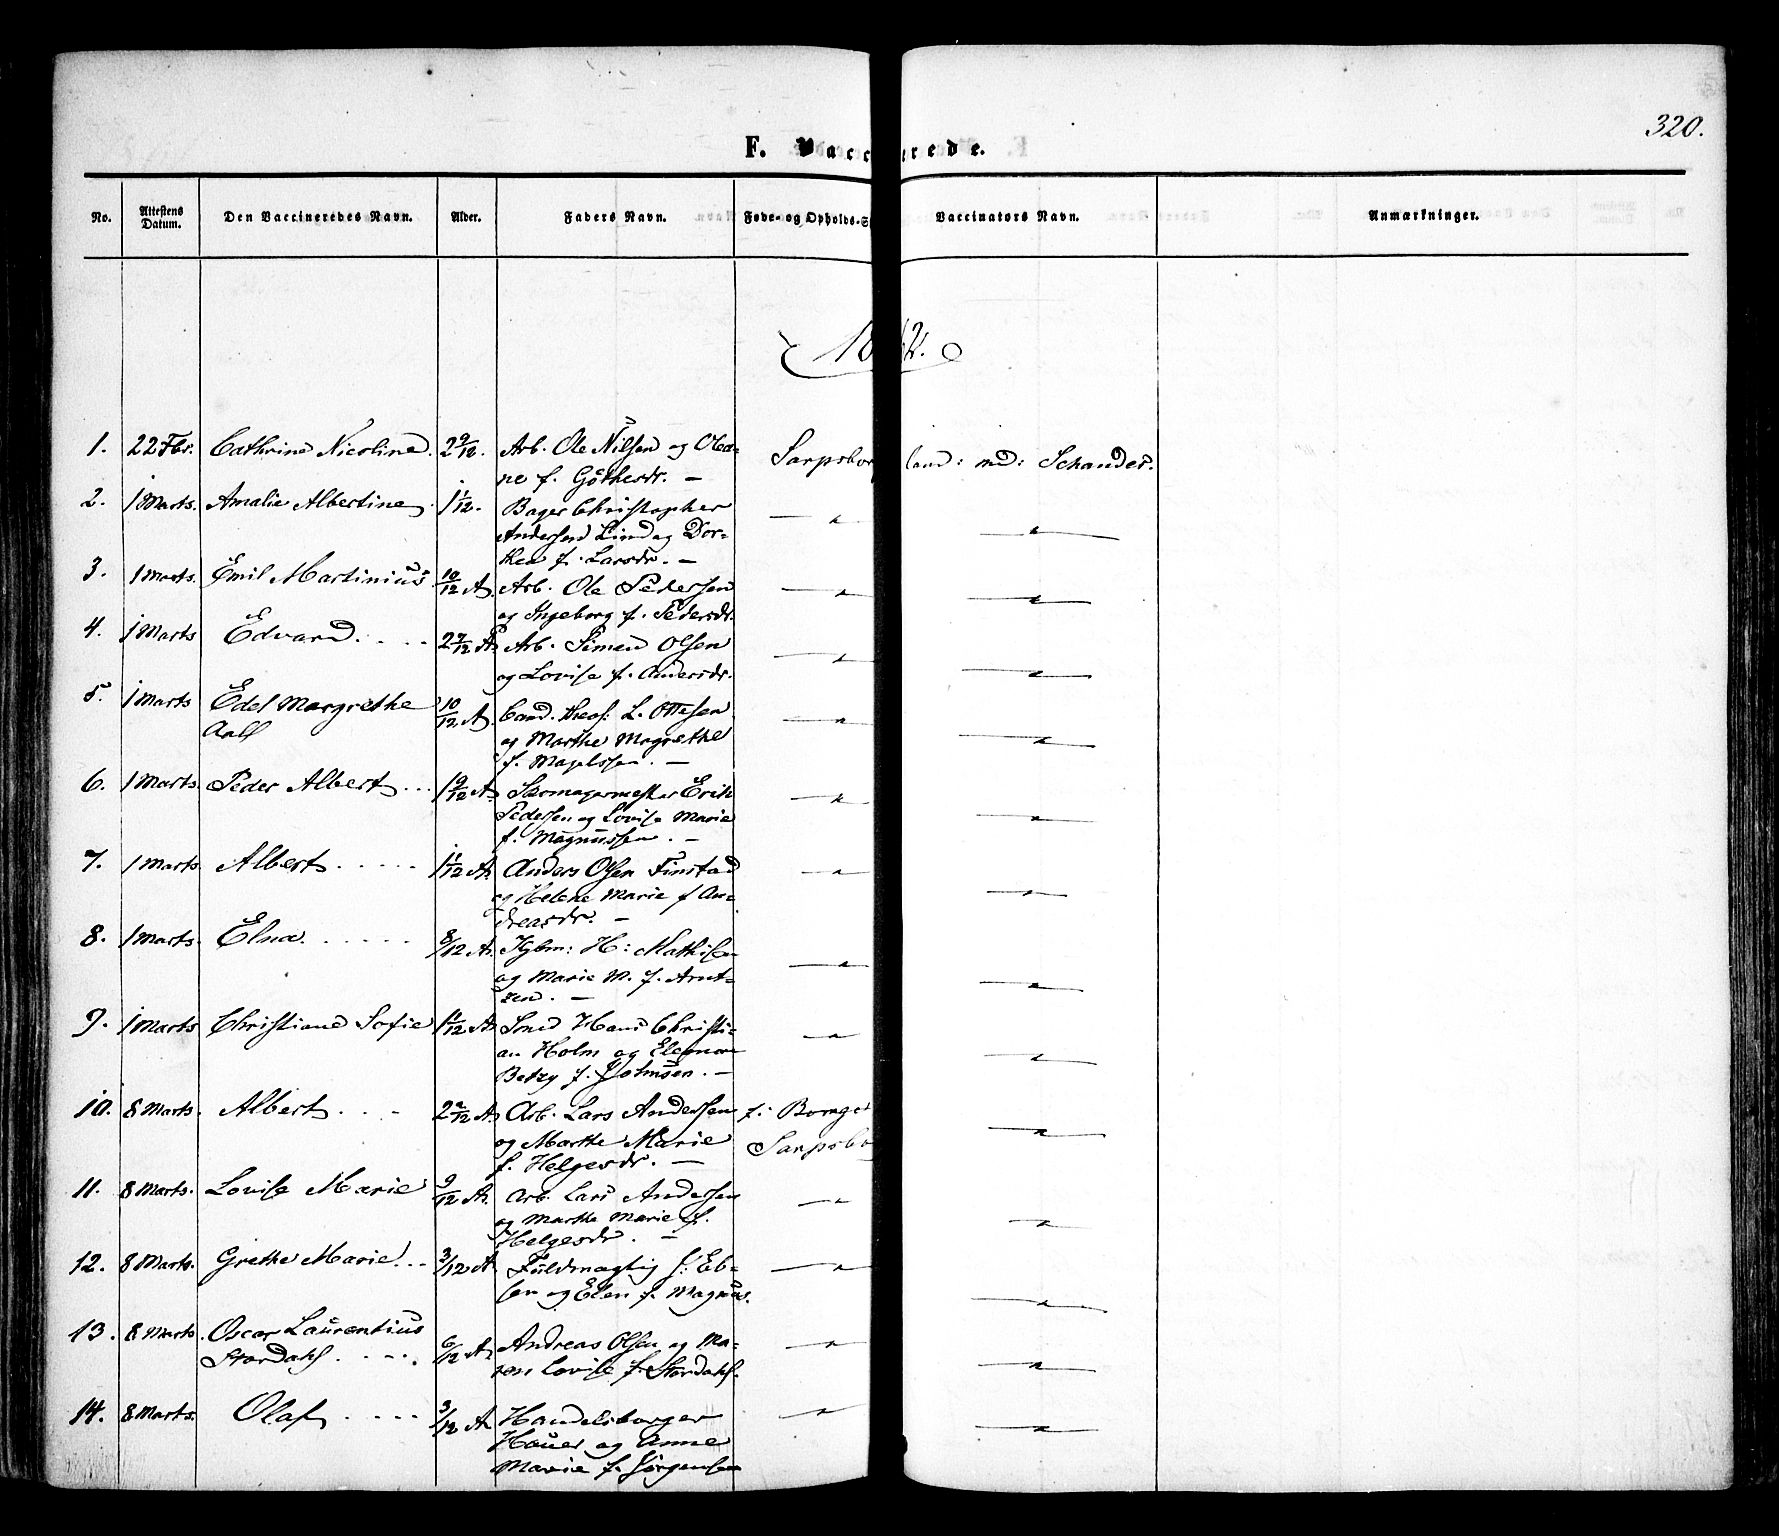 320.
F. Vaccinerede.
No. Attestens Datum. Den Vaccineredes Navn. Alder. Faders Navn. Føde- og Opholds-S Vaccinators Navn. Anmærkninger.
1. 22 Fbr. Cathrine Nicoline. 2 9/12. Arb. Ole Nilsen og Olea- Sarpsbor land: md: Schander.
ne f. Göthesdr. —
2. 1 Marts. Amalie Albertine 1 1/12. Bager Christopher — " — — " —
Andersen Lind og Dor-
thea f. Larsdr. —
3. 1 Marts. Emil Martinius. 10/12 A. Arb. Ole Pedersen — " — — " —
og Ingeborg f. Pedersdr.
4. 1 Marts Edvard. . . . 2 7/12 A. Arb. Simen Olsen — " — — " —
og Lovise f. Andersdr.
5. 1 Marts Edel Margrethe 10/12 A. Cand. theol: L. Ottesen — " — — " —
Aall og Marthe Magrethe
f. Magelssen. —
6. 1 Marts. Peder Albert . . . 1 9/12 A. Skomagermester Erik — " — — " —
Pedersen og Lovise Marie
f. Magnussen. —
7. 1 Marts. Albert . . . . . 1 1/12 A. Anders Olsen Finstad — " — — " —
og Helene Marie f An-
dreasdr. —
8. 1 Marts. Elna. . . . . . 8/12 A. Kjbm: H: Mathisen — " — — " —
og Marie M. f. Arnt-
zen. —
9. 1 Marts Christiane Sofie 1 1/12 A. Smed Hans Christi- — " — — " —
an Holm og Eleonore
Betzy f. Johnsen. —
10. 8 Marts. Albert . . . 2 2/12 A. Arb. Lars Andersen f. Borge — " —
og Marthe Marie Sarpsbo
f. Helgesdr. —
11. 8 Marts. Lovise Marie 9/12 A. Arb. Lars Andersen — " — — " —
og Marthe Marie f.
Helgesdr. —
12. 8 Marts. Grethe Marie. . . 3/12 A. Füldmægtig S: Eb- — " — — " —
sen og Elen f. Magnus.
13. 8 Marts. Oscar Laurentius
Stordahl . . . . 6/12 A. Andreas Olsen og Ma- — " — — " —
ren Lovise f. Stordahl.
14. 8 Marts. Olaf . . . . 3/12 A. Handelsborger — " — — " —
Hauer og Anne
Marie f. Jørgensen